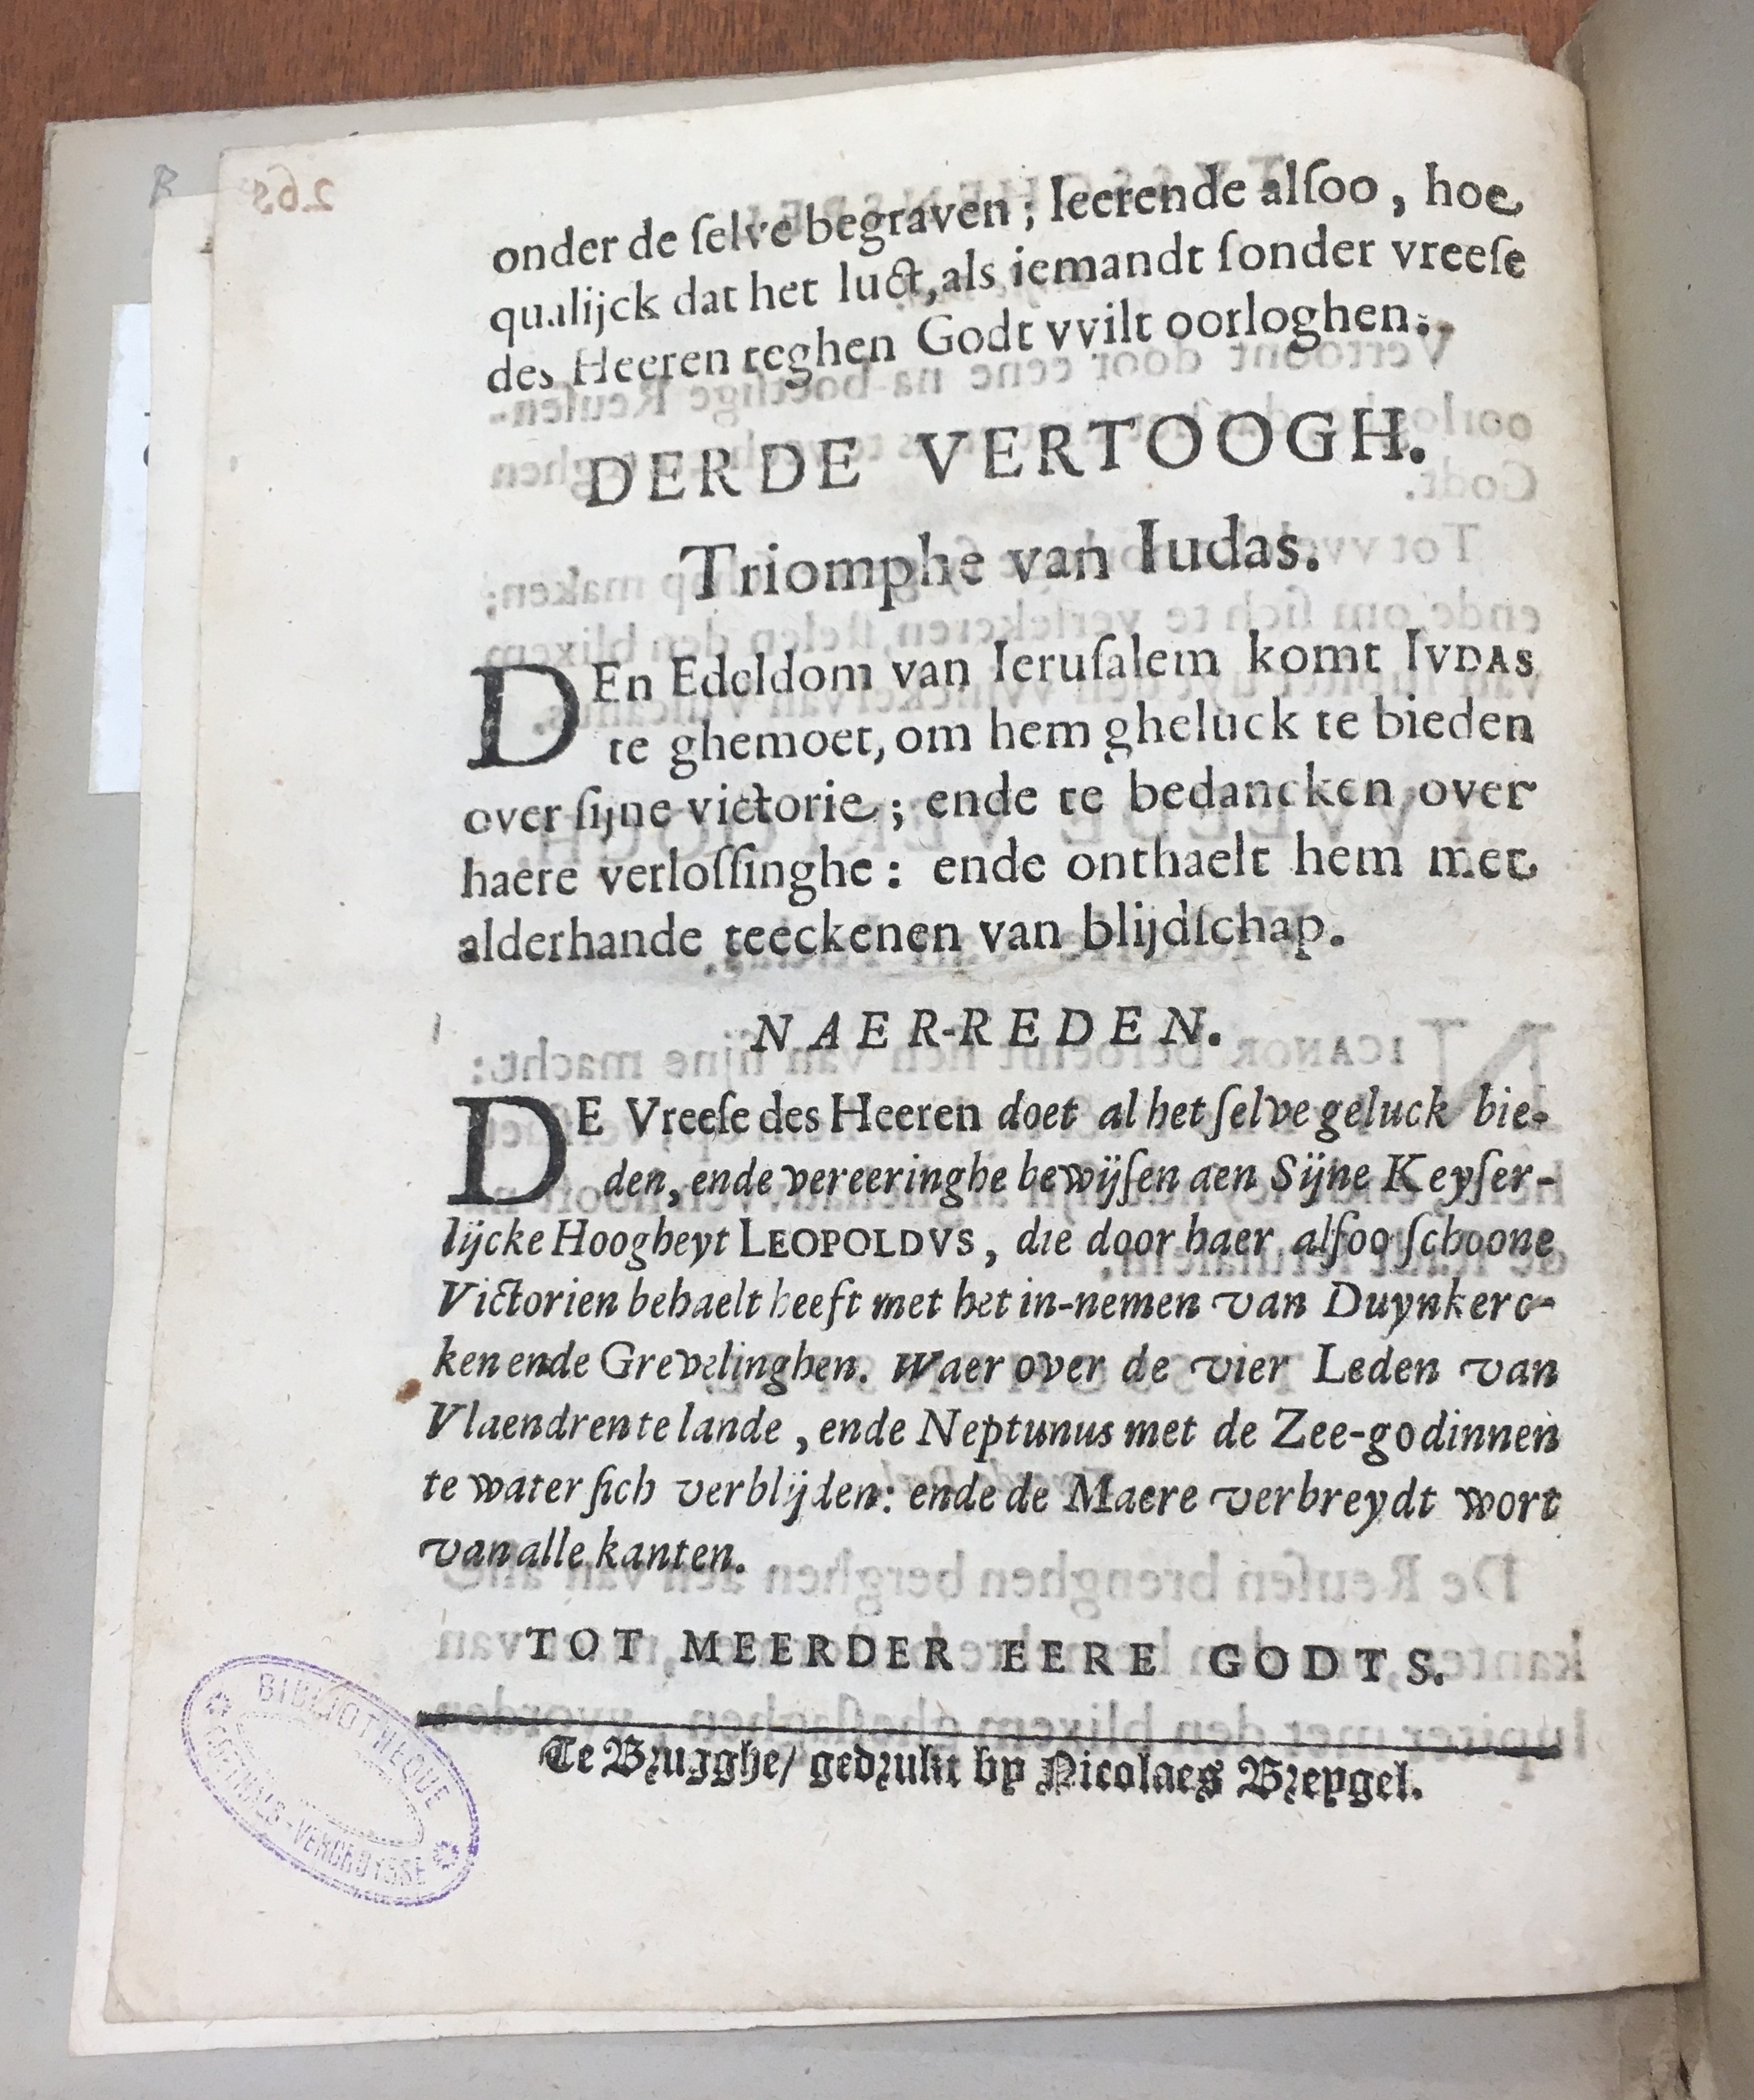 onder de ſelve begraven; leerende alſoo, hoe
qualijck dat het luct, als iemandt ſonder vreeſe
des Heeren teghen Godt vvilt oorloghen.
DERDE VERTOOGH.
Triomphe van Iudas.
DEn Edeldom van Ieruſalem komt IVDAS
te ghemoet, om hem gheluck te bieden
over ſijne victorie; ende te bedancken over
haere verloſſinghe: ende onthaelt hem met
alderhande teeckenen van blijdſchap.
NAER-REDEN.
DE Vreeſe des Heeren doet al het ſelve geluck bie-
den, ende vereeringhe bewijſen aen Sijne Keyſer-
lijcke Hoogheyt LEOPOLDVS, die door haer alſoo ſchoone
Victorien behaelt heeft met het in-nemen van Duynkerc-
ken ende Grevelinghen. Waer over de vier Leden van
Vlaendren te lande, ende Neptunus met de Zee-godinnen
te water ſich verblijden: ende de Maere verbreydt wort
van alle kanten.
TOT MEERDER EERE GODTS.
Te Brugghe/ gedrukt by Nicolaes Breygel.
BIBLIOTHEQUE
GOETHALS-VERCRUYSSE